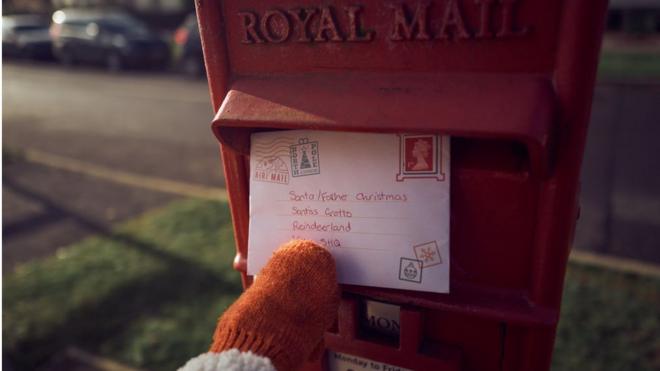 ROYAL MAIL
NORTH POLE
AIRE MAIL
Santa/Father Christmas
Santas Grotto
Reindeerland
5HQ
MON
Monday to Friday